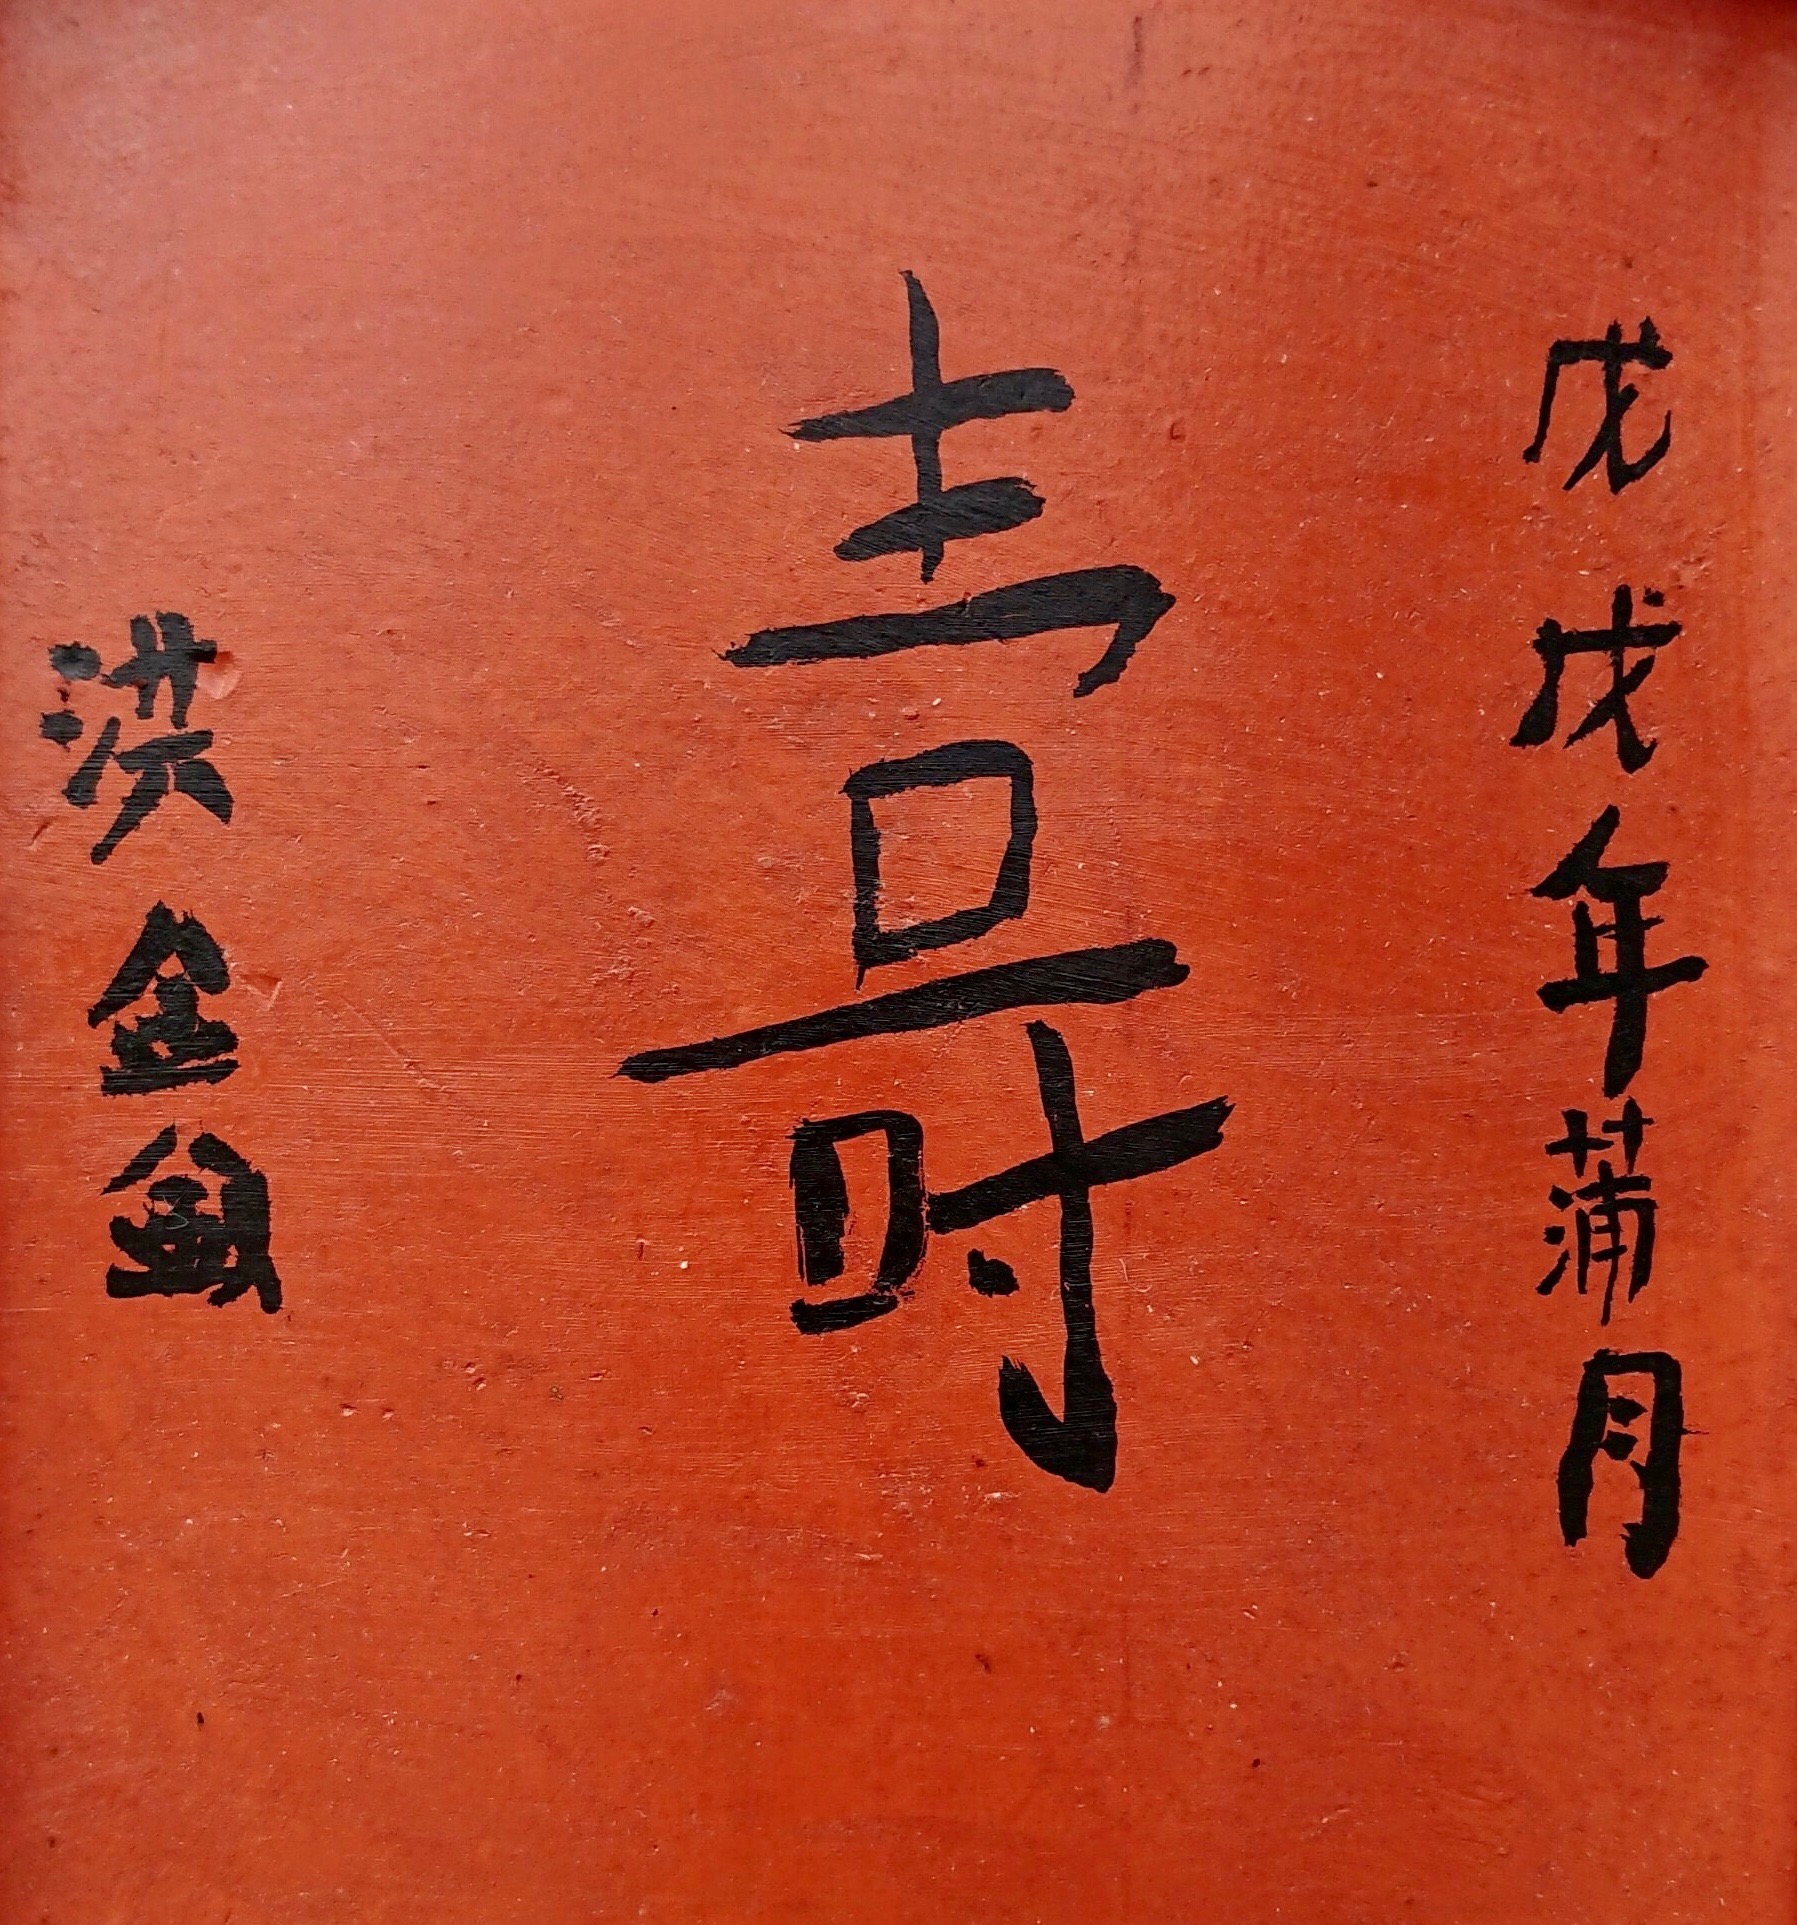 戊戌年蒲月
壽
洪金